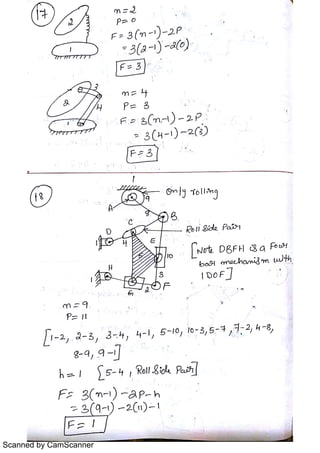 17
n=2
P=0
F = 3(n-1)-2P
= 3(2-1)-2(0)
F=3
2
1
n=4
P= 3
F = 3(n-1)-2P
= 3(4-1)-2(3)
F=3
2
3
4
1
18
1
Only rolling
9
A
8
B
C
Roll Slide Pair
D
1
4
E
10
[Note DBFH is a Four
bar mechanism with
1 DOF]
H
1
3
G
2
F
n=9
P=11
[1-2, 2-3, 3-4, 4-1, 5-10, 10-3, 5-7, 7-2, 4-8,
8-9, 9-1]
h=1 [5-4, Roll Slide Pair]
F= 3(n-1)-2P-h
= 3(9-1)-2(11)-1
F=1
Scanned by CamScanner